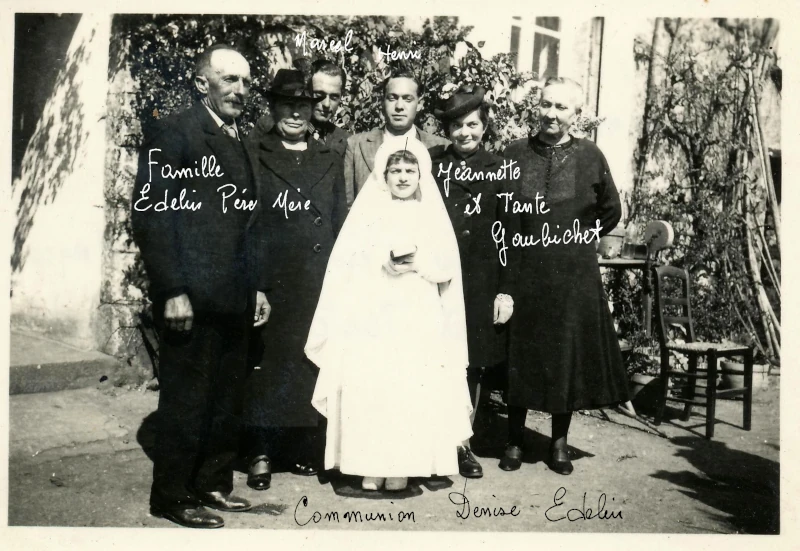 Marcel
Henri
Famille
Edelin Père Mère
Jeannette
et Tante
Gaubichet
Communion Denise Edelin